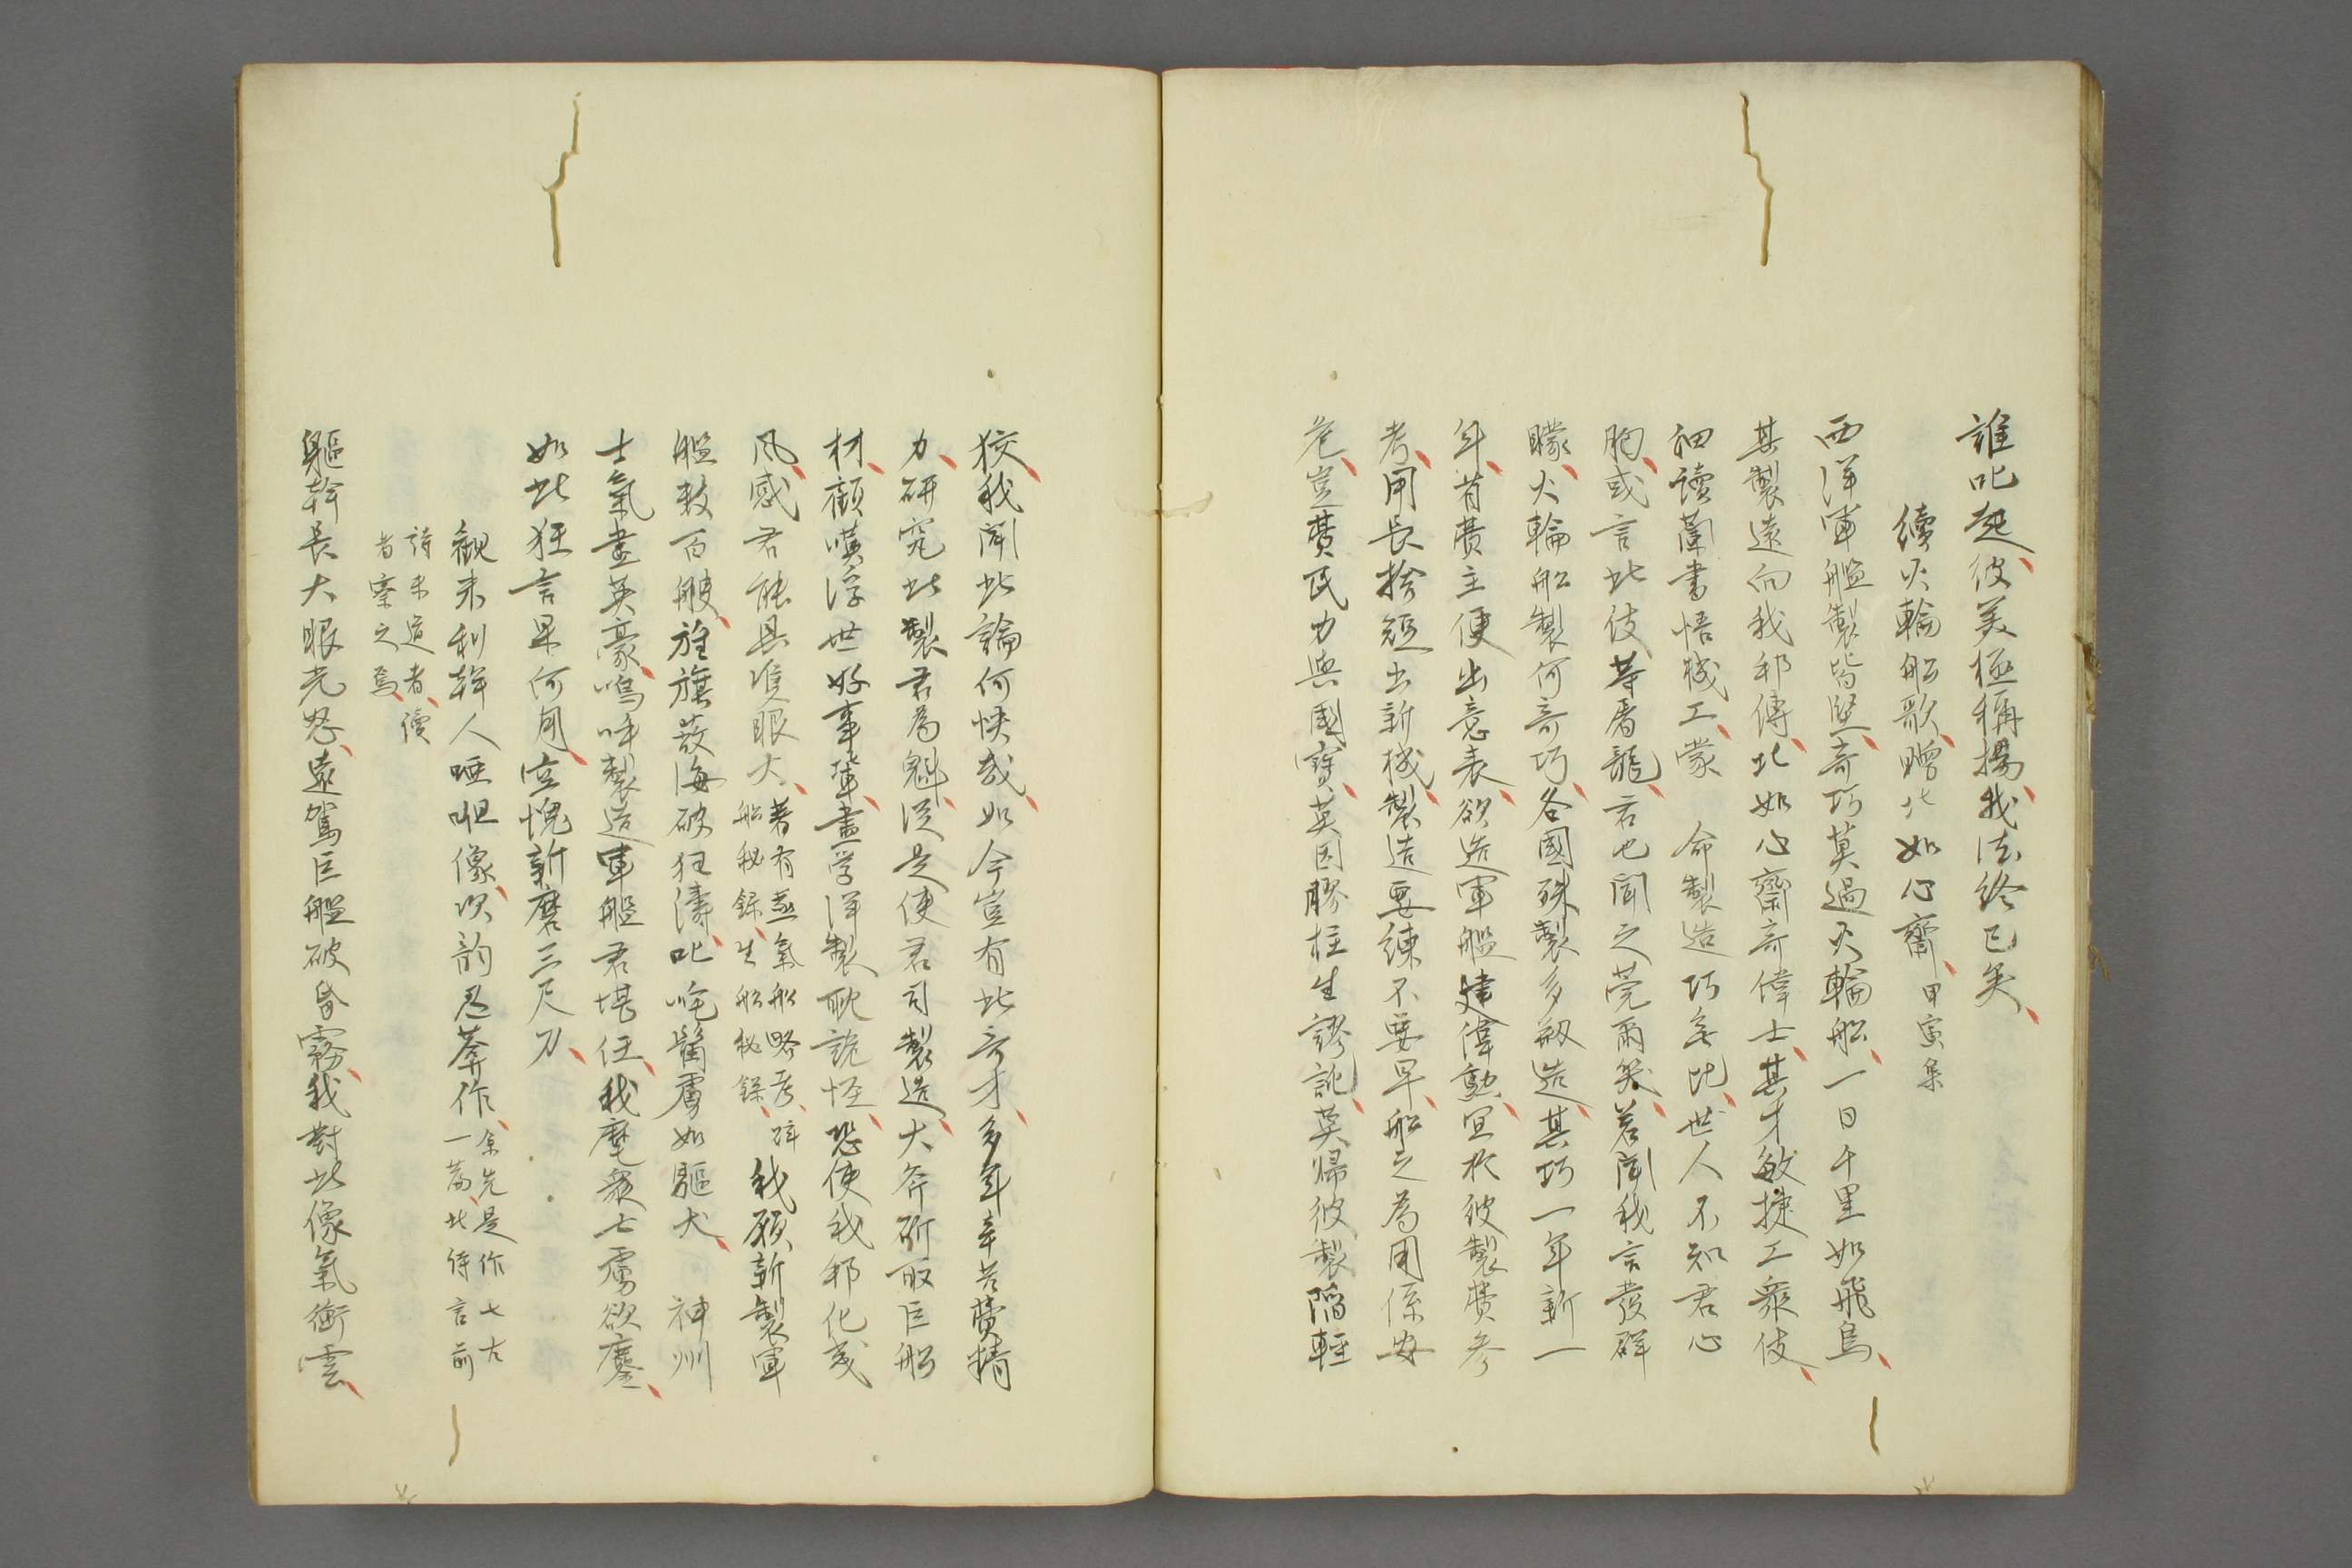 誰叱起彼美極稱揚我法終已矣
續火輪船歌贈北如心齋甲寅集
西洋軍艦製皆堅奇巧莫過火輪船一日千里如飛鳥
其製遠向我邦傳北如心齋奇偉士其才敏捷工衆伎
細讀蘭書悟機工蒙 命製造巧無比世人不知君心
胸或言此伎等屠龍君也聞之莞爾笑君聞我言發群
矇火輪船製何奇巧各國殊製多叙造其巧一年新一
年省費主便出意表欲造軍艦建偉勳宜於彼製費參
考用長捨短出新機製造要練不要早船之為用係安
危豈費民力與國寶莫因膠柱生謬訛莫歸彼製陷輕
狡我聞此論何快哉如今豈有此奇才多年辛苦費精
力研究此製君為魁從是使君司製造大斧斫取巨船
材顧嘆浮世好事輩盡学洋製耽詭怪恐使我邦化戎
風感君能具隻眼大著有蒸氣船略考
船秘録生船秘録我願新製軍
艦数百艘旌旗蔽海破狂濤叱咤醜虜如驅犬 神州
士氣盡英豪嗚呼製造軍艦君堪任我麾衆士虜欲鏖
如此狂言果何用空愧新磨三尺刀
觀米利幹人啞呾像次韵忍菴作余先是作七古
一篇此待言前
詩未道者讀
者察之焉
軀幹長大眼光怒遠駕巨艦破昏霧我對此像氣衝雲